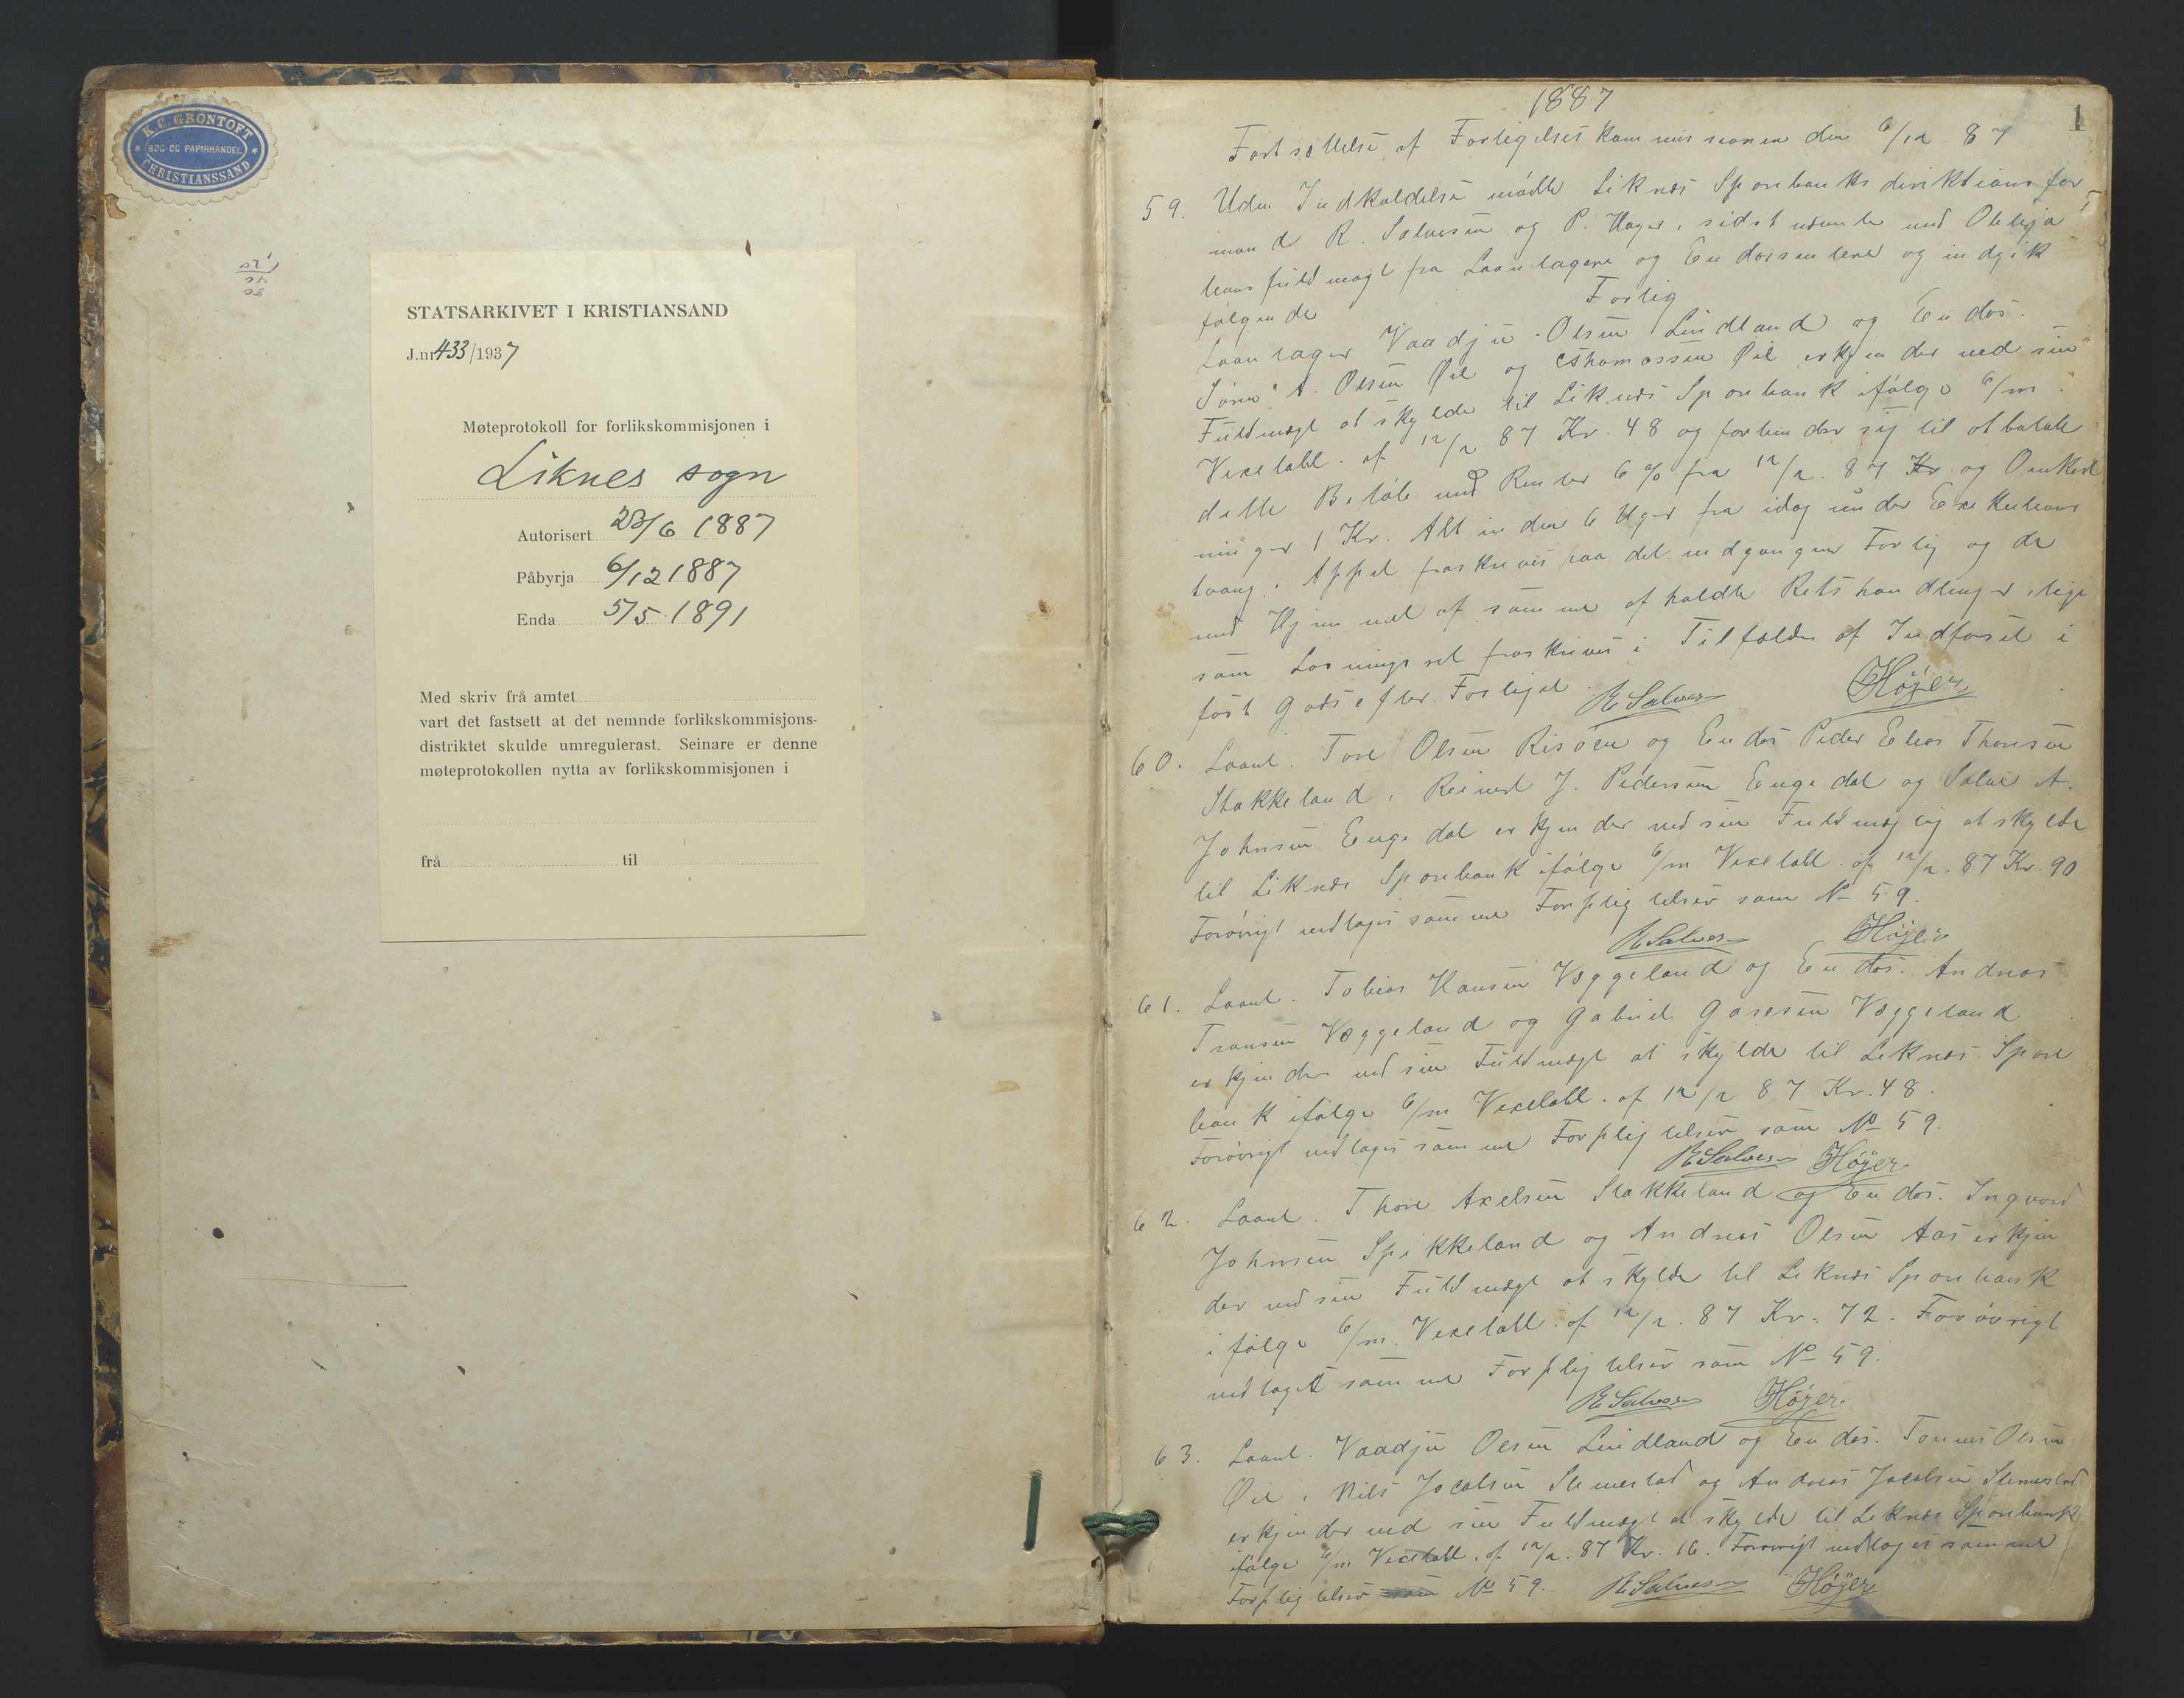 K. C. GRØNTOFT
BOG- OG PAPIRHANDEL
CHRISTIANSSAND
STATSARKIVET I KRISTIANSAND
J.nr 433/1937
Møteprotokoll for forlikskommisjonen i
Liknes sogn
Autorisert 23/6 1887
Påbyrja 6/12 1887
Enda 5/5 1891
Med skriv frå amtet
vart det fastsett at det nemnde forlikskommisjons-
distriktet skulde umregulerast. Seinare er denne
møteprotokollen nytta av forlikskommisjonen i
frå til
1
1887
Fortsættelse af Forligelseskommissionen den 6/12 87
59. Uden Indkaldelse mødte Liknes Sparebanks direktions for
mand R. Salvesen og P. Høyer, sidstnævnte med Obliga
tionsfuldmagt fra Laantagere og Endossentene og indgik
følgende Forlig
Laantager Vaadju Olsen Lindland og Endos.
A. Olsen Øie og Thomassen Øie erkjender ved sin
Fuldmægt at skylde til Liknes Sparebank ifølge 6/m
Vexelobl. af 12/2 87 Kr. 48 og forbinder sig til at betale
dette Beløb med Renter 6 % fra 12/2. 87 Kr og Omkost
ninger 1 Kr. Alt inden 6 Uger fra idag under Exekutions
tvang. Appel fraskrives paa det indgangne Forlig og de
med Hjemmel af samme afholdte Retshandlinger, lige
som Løsningsret fraskrives i Tilfælde af Indførsel i
fast Gods efter Forliget. R Salvesen Høyer
60. Laant. Tore Olsen Risøen og Endos Peder Elias Thorsen
Stakkeland, Reinert J. Pedersen Engedal og Salve A.
Johnsen Engedal erkjender ved sin Fuldmægtig at skylde
til Liknes Sparebank ifølge 6/m Vexelobl. af 12/2. 87 Kr. 90
Forøvrigt vedtages samme Forpligtelser som No 59.
R Salvesen Høyer
61. Laant. Tobias Hansen Væggeland og Endos. Andreas
Væggeland og Gabriel Væggeland
erkjender ved sin Fuldmægt at skylde til Liknes Spare
bank ifølge 6/m Vexelobl. af 12/2 87 Kr. 48.
Forøvrigt vedtages samme Forpligtelser som No 59.
R Salvesen Høyer
62. Laant. Thore Axelsen Stakkeland og Endos. Ingvard
Johnsen Spikkeland og Andreas Olsen Aas erkjen
der ved sin Fuldmægt at skylde til Liknes Sparebank
ifølge 6/m. Vexelobl. af 12/2. 87 Kr. 72. Forøvrigt
vedtaget samme Forpligtelser som No 59.
R Salvesen Høyer
63. Laant. Vaadju Olsen Lindland og Endos. Tønnes Olsen
Øie, Nils Jacobsen Slimestad og Andreas Jacobsen Slimestad
erkjender ved sin Fuldmægt at skylde til Liknes Sparebank
ifølge 6/m Vexelobl. af 12/2. 87 Kr. 16. Forøvrigt vedtages samme
Forpligtelser som No 59. R Salvesen Høyer